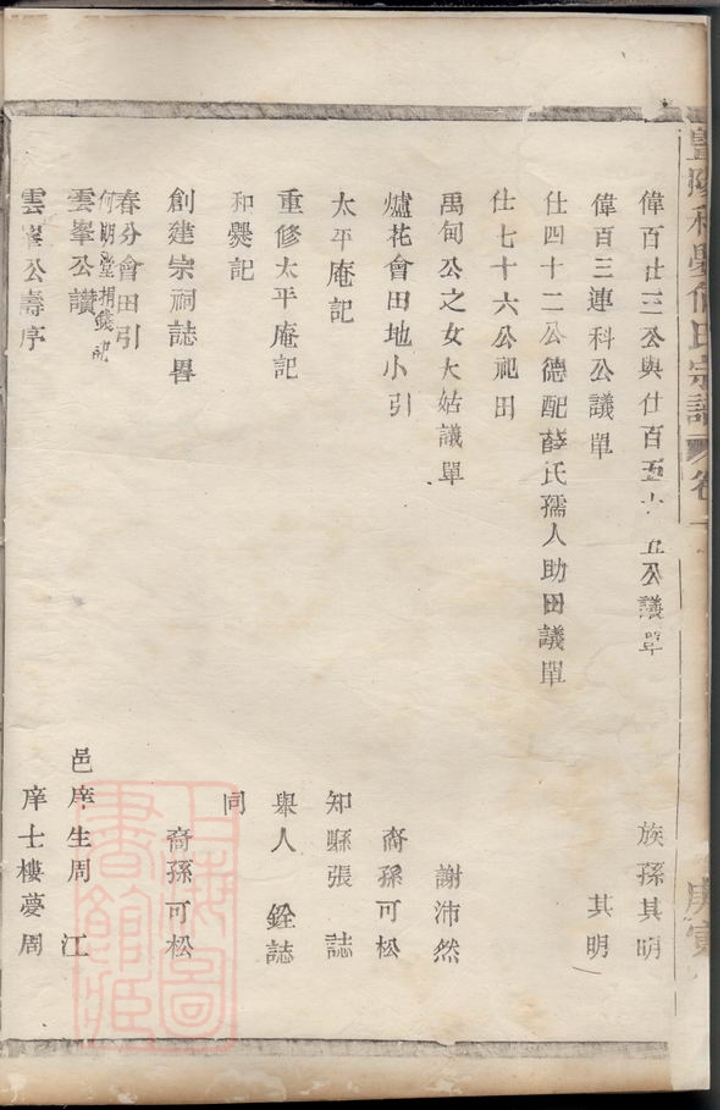 宗譜 卷
偉百廿三公與仕百五十五公議單 族孫其明
偉百三連科公議單 其明
仕四十二公德配薛氏孺人助田議單
仕七十六公祀田
禹甸公之女大姑議單 謝沛然
爐花會田地小引 裔孫可松
太平庵記 知縣張 誌
重修太平庵記 舉人 銓誌
和爨記 同
創建宗祠誌畧 裔孫可松
春分會田引
何期堂捐錢記
雲峯公讚 邑庠生周 江
雲峯公壽序 庠士樓夢周
上海圖書館藏